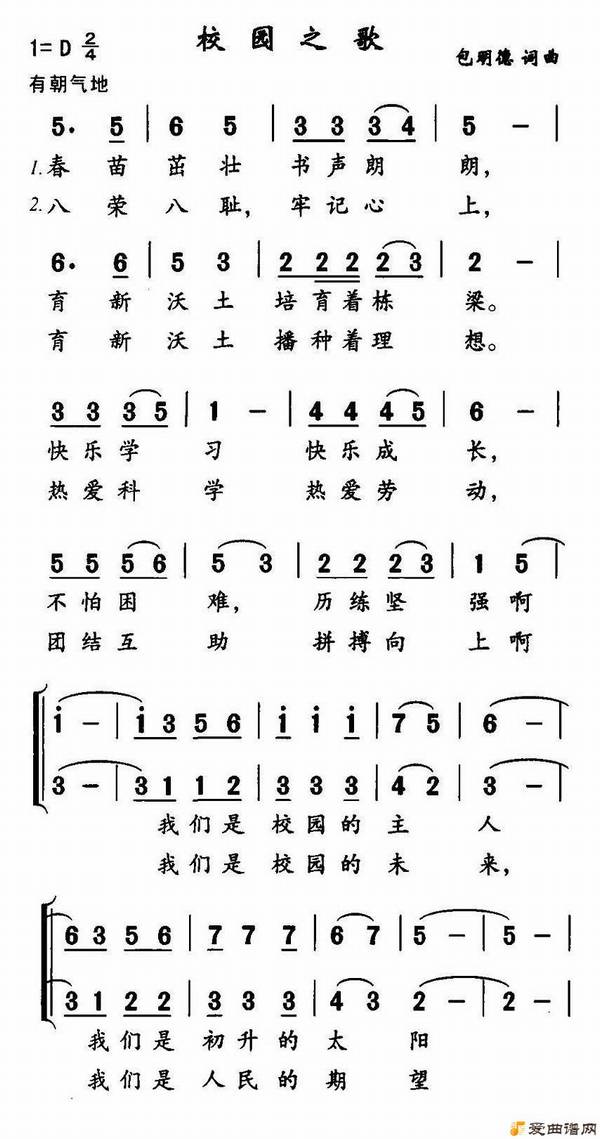 校园之歌
1=D 2/4
包明德 词曲
有朝气地
5. 5 | 6 5 | 3 3 3 4 | 5 - |
1.春苗茁壮 书声朗朗,
2.八荣八耻,牢记心上,
6. 6 | 5 3 | 2 2 2 2 3 | 2 - |
育新沃土 培育着栋梁。
育新沃土 播种着理想。
3 3 3 5 | 1 - | 4 4 4 5 | 6 - |
快乐学习 快乐成长,
热爱科学 热爱劳动,
5 5 5 6 | 5 3 | 2 2 2 3 | 1 5 |
不怕困难, 历练坚强啊
团结互助 拼搏向上啊
i - | i 3 5 6 | i i i | 7 5 | 6 - |
3 - | 3 1 1 2 | 3 3 3 | 4 2 | 3 - |
我们是校园的主人
我们是校园的未来,
6 3 5 6 | 7 7 7 | 6 7 | 5 - | 5 - |
3 1 2 2 | 3 3 3 | 4 3 | 2 - | 2 - |
我们是初升的太阳
我们是人民的期望
爱曲谱网